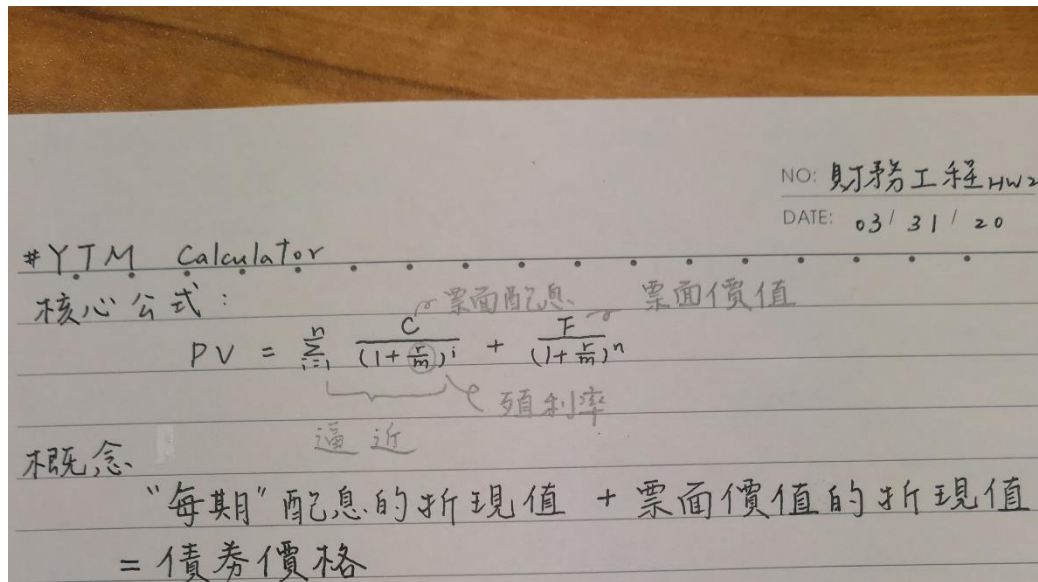 NO: 財務工程 HW2
DATE: 03/31/20
#YTM Calculator
核心公式:
票面配息 票面價值
PV = \sum_{i=1}^{n} \frac{C}{(1+\frac{r}{m})^i} + \frac{F}{(1+\frac{r}{m})^n}
殖利率
逼近
概念
"每期"配息的折現值 + 票面價值的折現值
= 債券價格